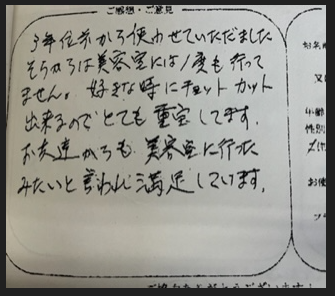 ご感想・ご意見
3年位前から使わせていただきました
そちからは美容室には1度も行って
ません。好きな時にチョット カット
出来るので とても 重宝してます。
お友達からも 美容室に行った
みたいと言われ 満足しています。